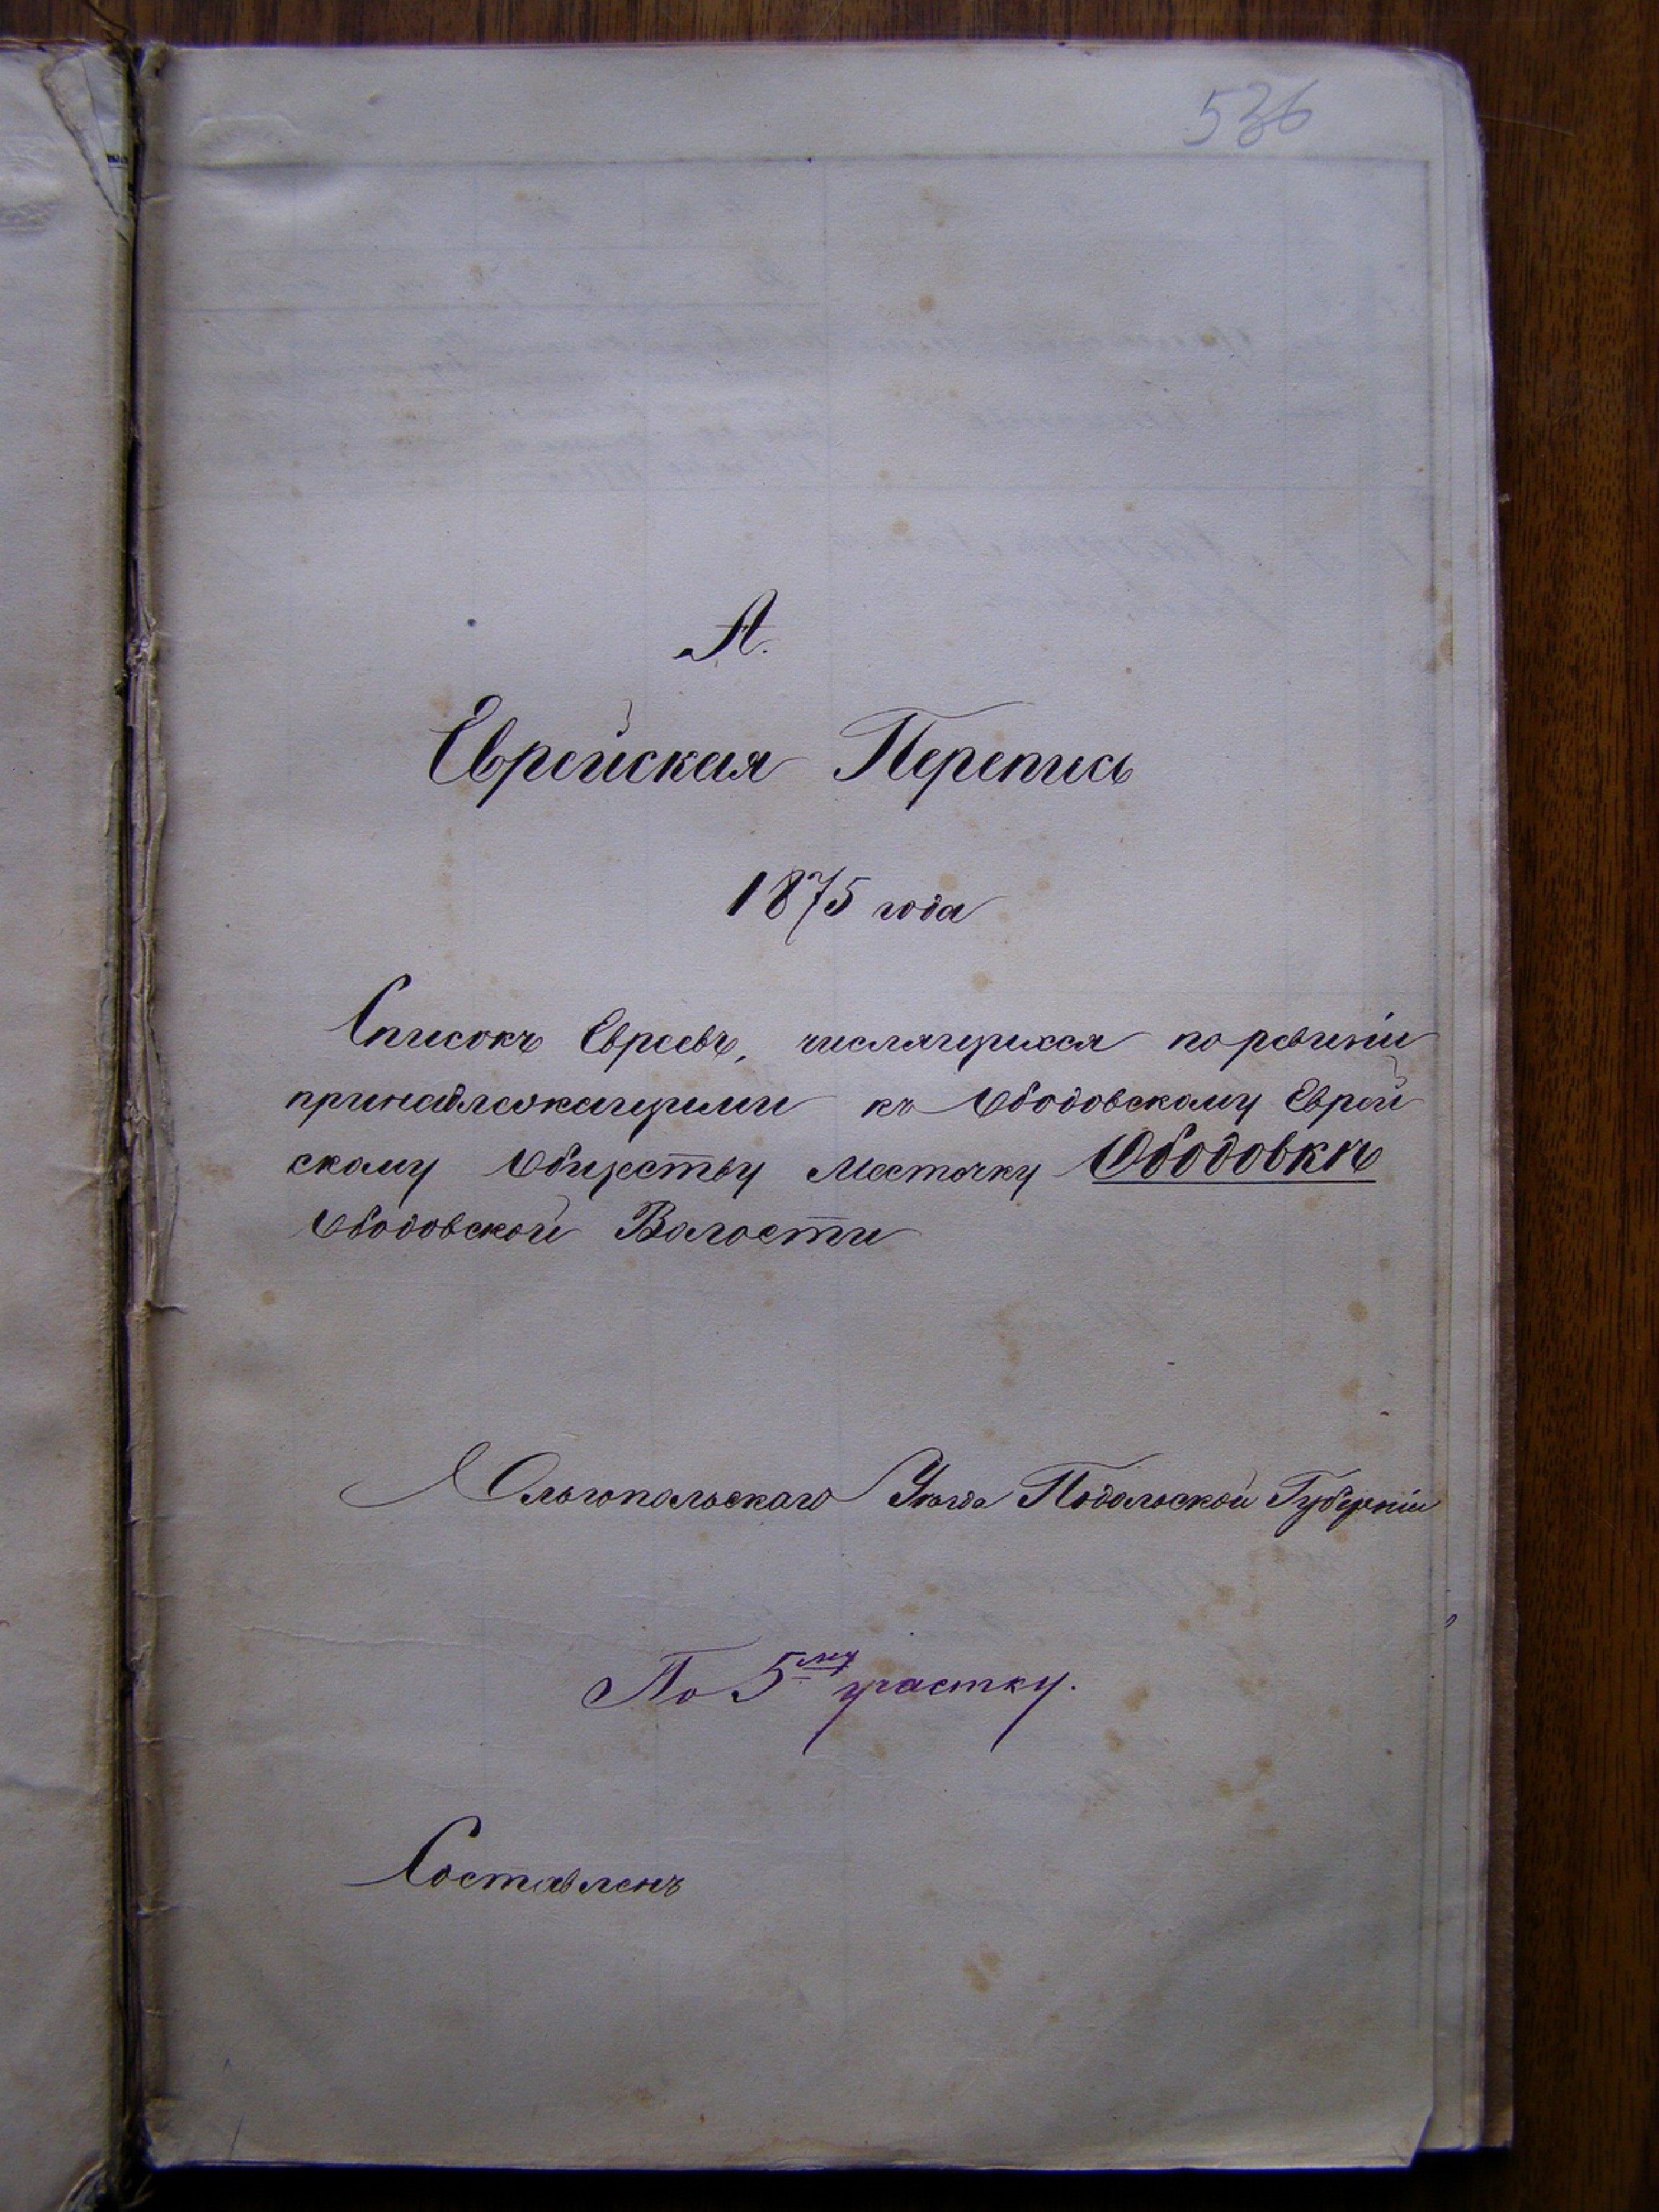 536
А.
Еврейская Перепись
1875 года
Списокъ Евреевъ, числящихся по ревизіи
принадлежащими къ Ободовскому Еврей
скому Обществу Местечку Ободовкѣ
Ободовской Волости
Ольгопольскаго Уѣзда Подольской Губерніи
По 5му участку.
Составленъ